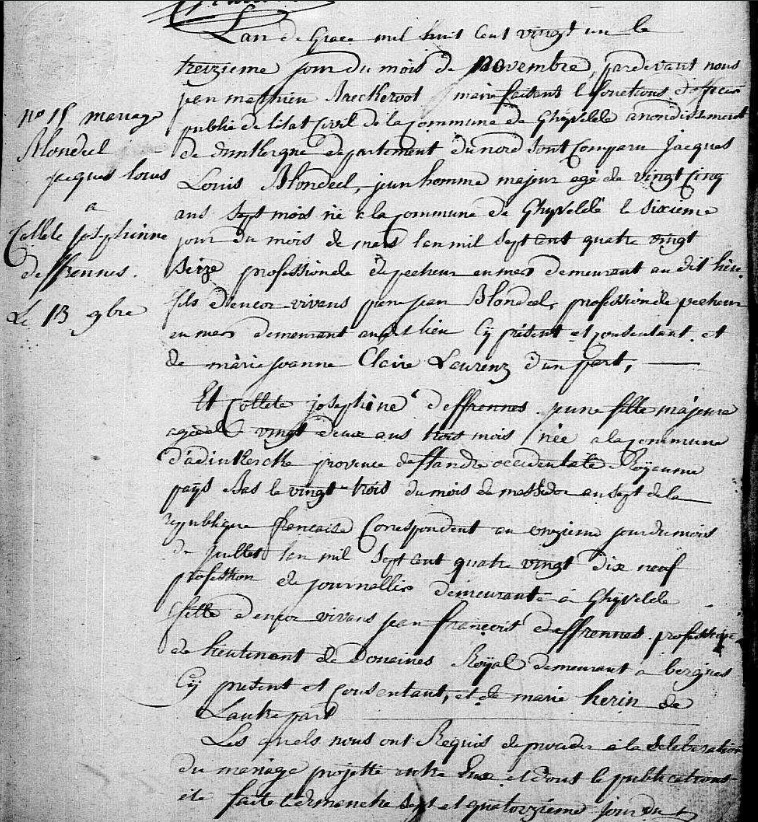 L'an de Grace mil huit Cent vingt un le
treizieme jour du mois de novembre, pardevant nous
jean mathieu maire faisant les fonctions d'officier
publie de l'état Civil de la Commune de Ghyvelde arrondissement
de dunkerque departement du nord sont Comparu jacques
Louis Blondeel, jeun homme majeur agé de vingt Cinq
ans sept mois né a la Commune de Ghyvelde le sixieme
jour du mois de mars l'an mil sept cent quatre vingt
seize profession de de pecheur en mer demeurant au dit lieu.
fils d'encor vivans pierr jean Blondeel, profession de pecheur
en mer demeurant audit lieu Cy présent et consentant. et
de marie joanne Claire Laurenz d'un part,
Et Collete josephine deffrennes jeune fille majeure
agée de vingt deux ans trois mois née a la Commune
d'adinkercke province de fflandre occidentale Royaume
pays Bas le vingt trois du mois de messidor an sept de la
republique francaise Correspondent au onzieme jour du mois
de juillet l'an mil sept cent quatre vingt dix neuf
profession de journallier demeurante à Ghyvelde
fille d'encor vivans jean françois deffrennes profession
de lieutenant de Douaines Royal demeurant a bergues
Cy présent et consentant, et de marie herin de
Lautre part
Les quels nous ont Requis de proceder a la Celebration
du mariage projetté entre Eux et dont les publications
été faite Dimanche sept et quatorzième jour du
no 15 mariage
Blondeel
jacques louis
a
Collete josephinne
deffrennes.
Le 13 9bre